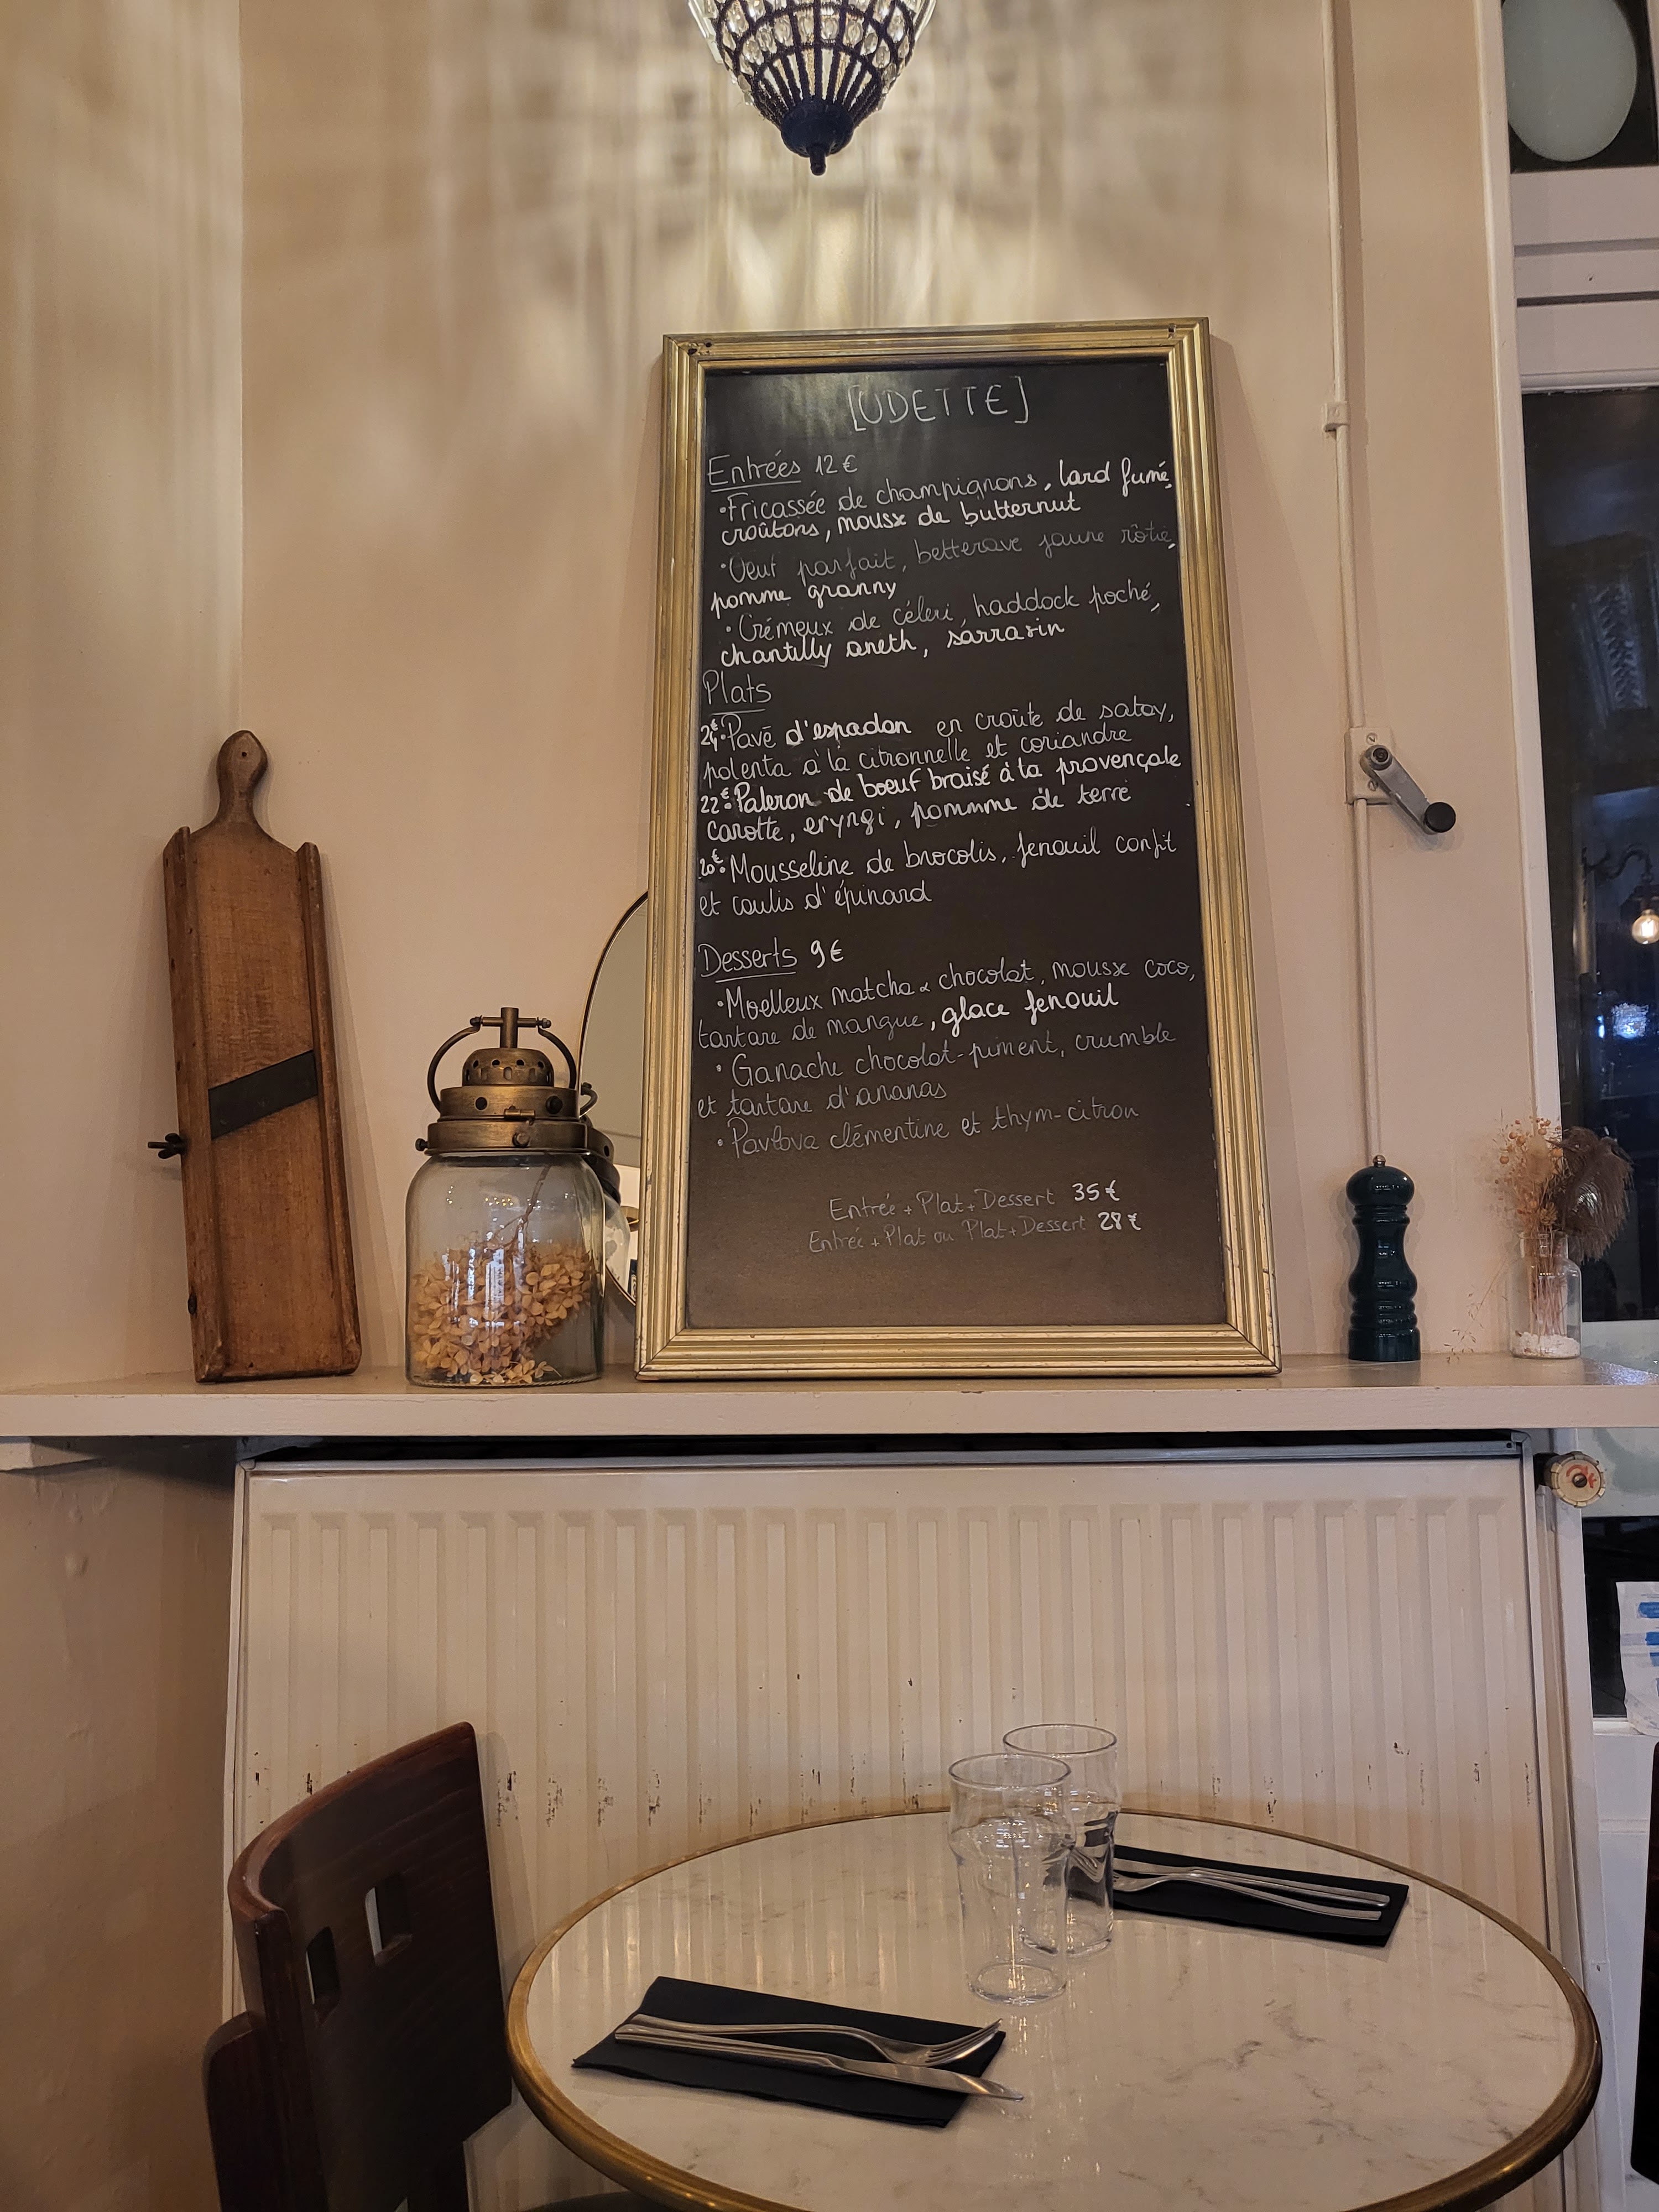 [UDETTE]
Entrées 12€
•Fricassée de champignons, lard fumé,
croûtons, mousse de butternut
•Oeuf parfait, betterave jaune rôtie,
pomme granny
•Crémeux de céleri, haddock poché,
chantilly aneth, sarrasin
Plats
24€•Pavé d'espadon en croûte de satay,
polenta à la citronnelle et coriandre
22€•Paleron de boeuf braisé à la provençale
carotte, eryngi, pommme de terre
20€•Mousseline de brocolis, fenouil confit
et coulis d'épinard
Desserts 9€
•Moelleux matcha & chocolat, mousse coco,
tartare de mangue, glace fenouil
•Ganache chocolat-piment, crumble
et tartare d'ananas
•Pavlova clémentine et thym-citron
Entrée + Plat + Dessert 35€
Entrée + Plat ou Plat + Dessert 28€